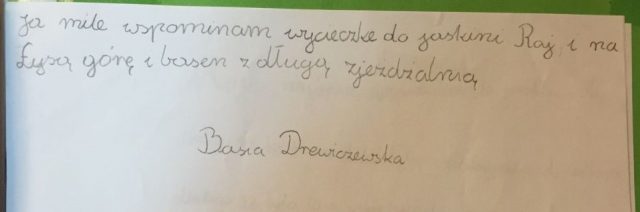 Ja mile wspominam wycieczkę do jaskini Raj i na
Łysą górę i basen z długą zjeżdzialnią
Basia Drewiczewska